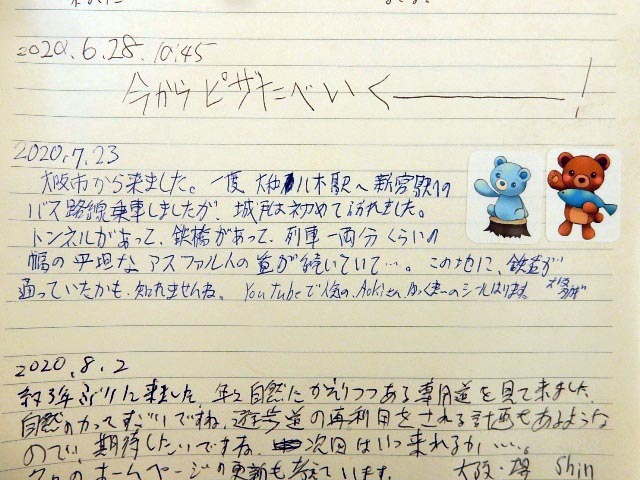 2020.6.28. 10:45
今からピザたべいくー!
2020.7.23
大阪市から来ました。一度 大和八木駅へ新宮駅への
バス路線乗車しましたが、城戸は初めて訪れました。
トンネルがあって、鉄橋があって、列車一両分くらいの
幅の平坦なアスファルトの道が続いていて…。この地に、鉄道が
通っていたかも、知れませんね。YouTubeで人気の、Aokiさん、ゆっくまーのシールはります。
2020.8.2
約3年ぶりに来ました。年々自然にかえりつつある専用道を見て来ました。
自然の力ってすごいですね。遊歩道の再利用をされる計画もあるような
ので、期待したいですね。次回はいつ来れるか…。
のホームページの更新も考えています。 大阪・堺 Shin